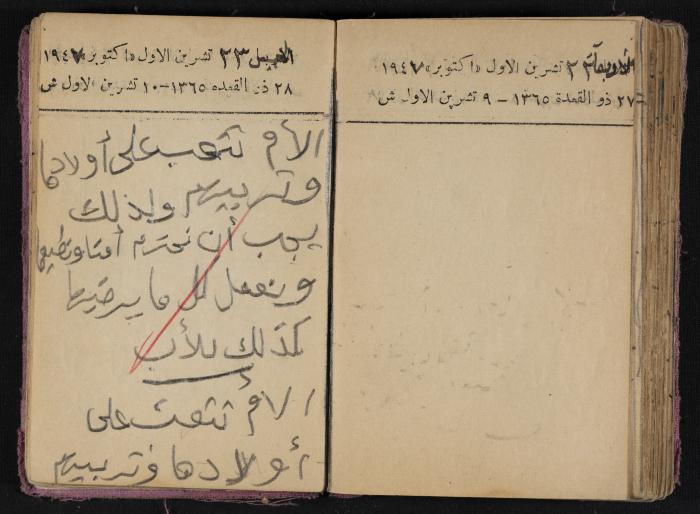 ٢٣ تشرين الاول «اكتوبر» ١٩٤٧
٢٧ ذو القعدة ١٣٦٥ – ٩ تشرين الاول ش
٢٣ تشرين الاول «اكتوبر» ١٩٤٧
٢٨ ذو القعدة ١٣٦٥ – ١٠ تشرين الاول ش
الأم تتعب على أولادها
وتربيهم ولذلك
يجب أن نحترم أمنا ونطيعها
ونعمل كل ما يرضيها
كذلك للأب
الأم تتعب على
أولادها وتربيهم